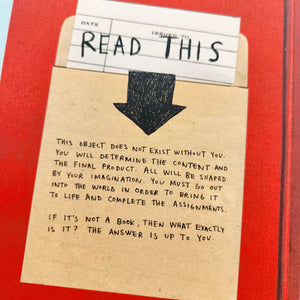 DATE
ISSUED TO
READ THIS
THIS OBJECT DOES NOT EXIST WITHOUT YOU.
YOU WILL DETERMINE THE CONTENT AND
THE FINAL PRODUCT. ALL WILL BE SHAPED
BY YOUR IMAGINATION. YOU MUST GO OUT
INTO THE WORLD IN ORDER TO BRING IT
TO LIFE AND COMPLETE THE ASSIGNMENTS.
IF IT'S NOT A BOOK, THEN WHAT EXACTLY
IS IT? THE ANSWER IS UP TO YOU.